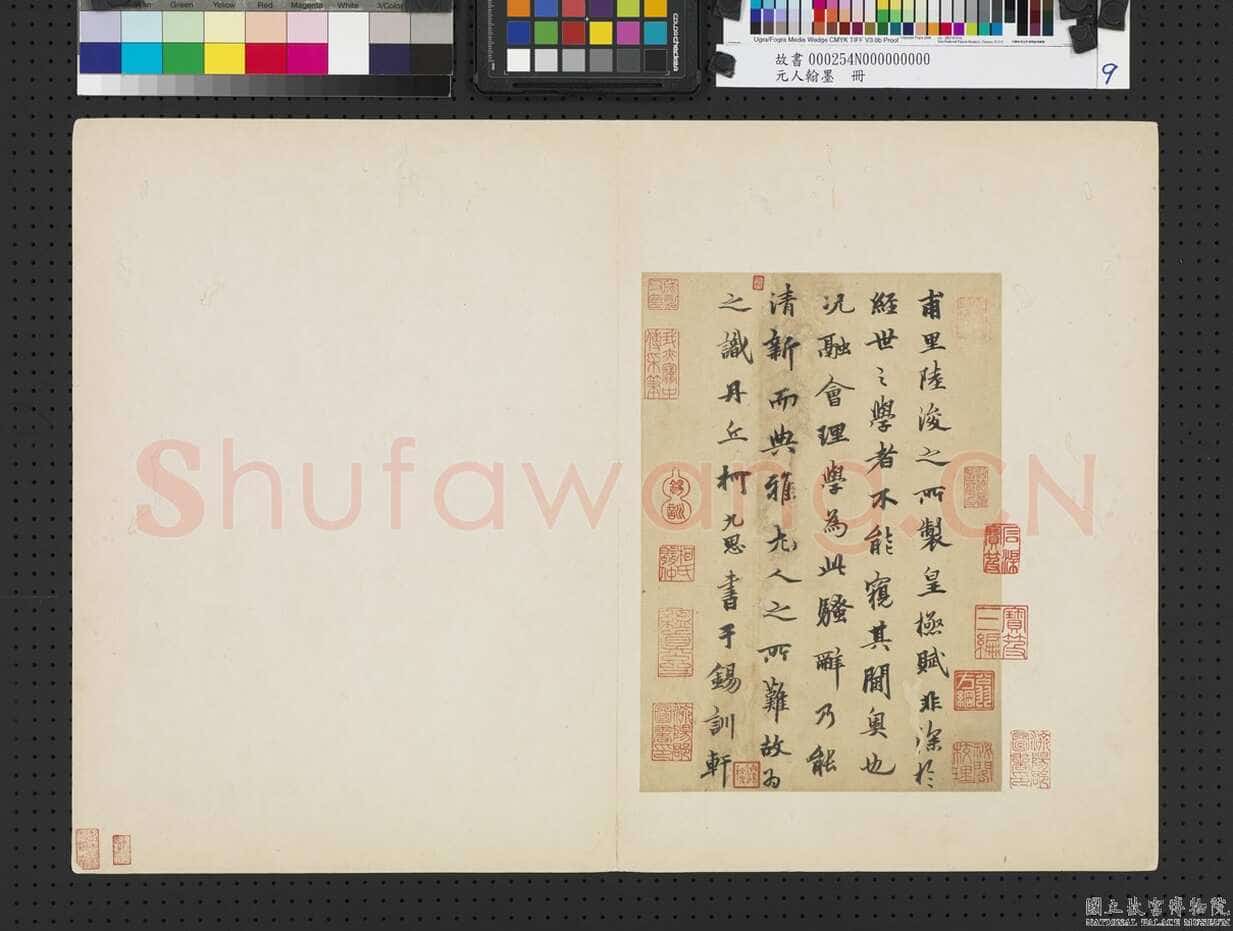 Green
Yellow
Red
Magenta
White
3/Color
Ugra/Fogra Media Wedge CMYK TIFF V3.0b Proof
故書 000254N000000000
元人翰墨 冊
9
甫里陸浚之所製皇極賦非深於
經世之學者不能窺其閫奧也
況融會理學為此騷辭乃能
清新而典雅尤人之所難故為
之識丹丘柯九思書于錫訓軒
Shufawang.CN
國立故宮博物院
NATIONAL PALACE MUSEUM